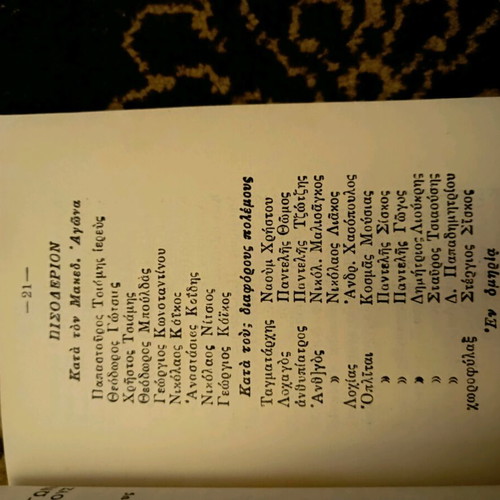 — 21 —
ΠΙΣΟΔΕΡΙΟΝ
Κατὰ τὸν Μακεδ. Ἀγῶνα
Παπασταῦρος Τσιάμης ἱερεὺς
Θεόδωρος Γότσης
Χρῆστος Τσιάμης
Θεόδωρος Μπούλδας
Γεώργιος Κωνσταντίνου
Νικόλαος Κόϊκος
Ἀναστάσιος Κοΐδης
Νικόλαος Νίτσιος
Γεώργιος Κόϊκος
Κατὰ τοὺς διαφόρους πολέμους
Ταγματάρχης Ναοὺμ Χρήστου
Λοχαγὸς Παντελῆς Θῶμος
ἀνθυπίατρος Παντελῆς Τζώτζης
Ἀνθ)γὸς Νικόλ. Μαλιαγκος
» Νικόλαος Λιάκος
Λοχίας Ἀνδρ. Χασόπουλος
Ὁπλῖται Κοσμᾶς Μούσιας
» Παντελῆς Σίσκος
» Παντελῆς Γῶγος
» Δημήτριος Λιούκρης
» Σταῦρος Τσιαούσης
» Δ. Παπαδημητρίου
χωροφύλαξ Στέργιος Σίσκος
Ἐν ὁμηρίᾳ